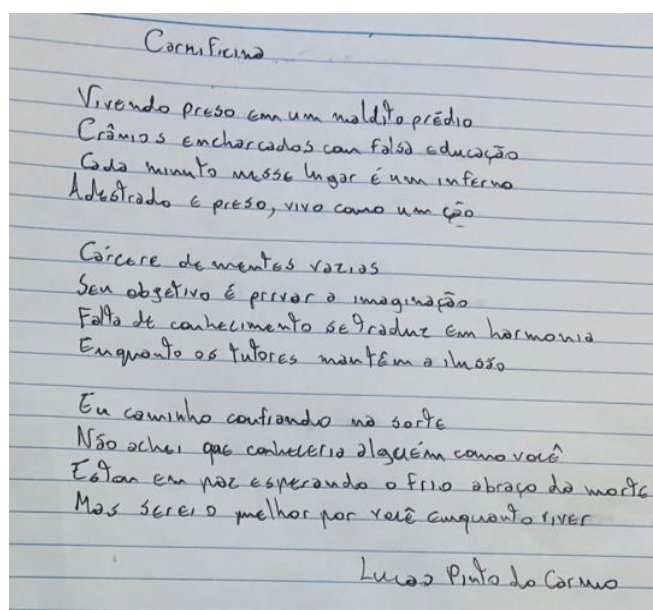 Carnificina
Vivendo preso em um maldito prédio
Crânios encharcados com falsa educação
Cada minuto nesse lugar é um inferno
Adestrado e preso, vivo como um ção
Cárcere de mentes vazias
Seu objetivo é privar a imaginação
Falta de conhecimento se traduz em harmonia
Enquanto os tutores mantêm a ilusão
Eu caminho confiando na sorte
Não achei que conheceria alguém como você
Estou em paz esperando o frio abraço da morte
Mas serei o melhor por você enquanto viver
Lucas Pinto do Carmo